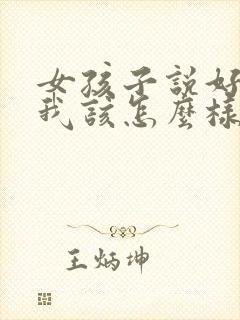 女孩子説好
我該怎麼樣
王炳坤